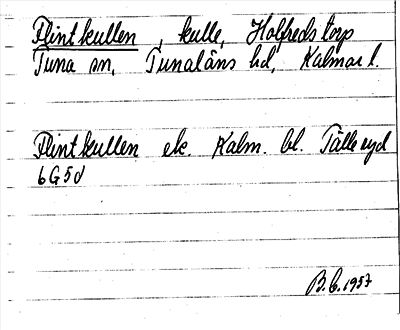 Flintkullen, kulle, Halfredstorp
Tuna sn, Tunaläns hd, Kalmar l.
Flintkullen ek. Kalm. bl.
6G5d
B.C. 1957